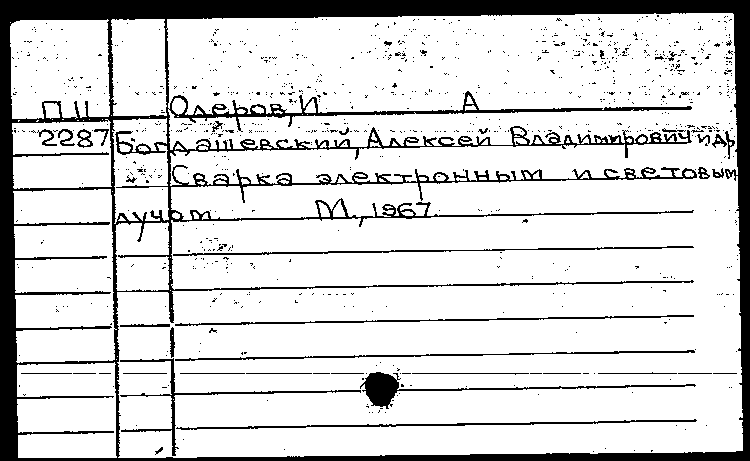 П II Олеров, И А
2287 Богдашевский, Алексей Владимирович и др.
Сварка электронным и световым
лучом М., 1967